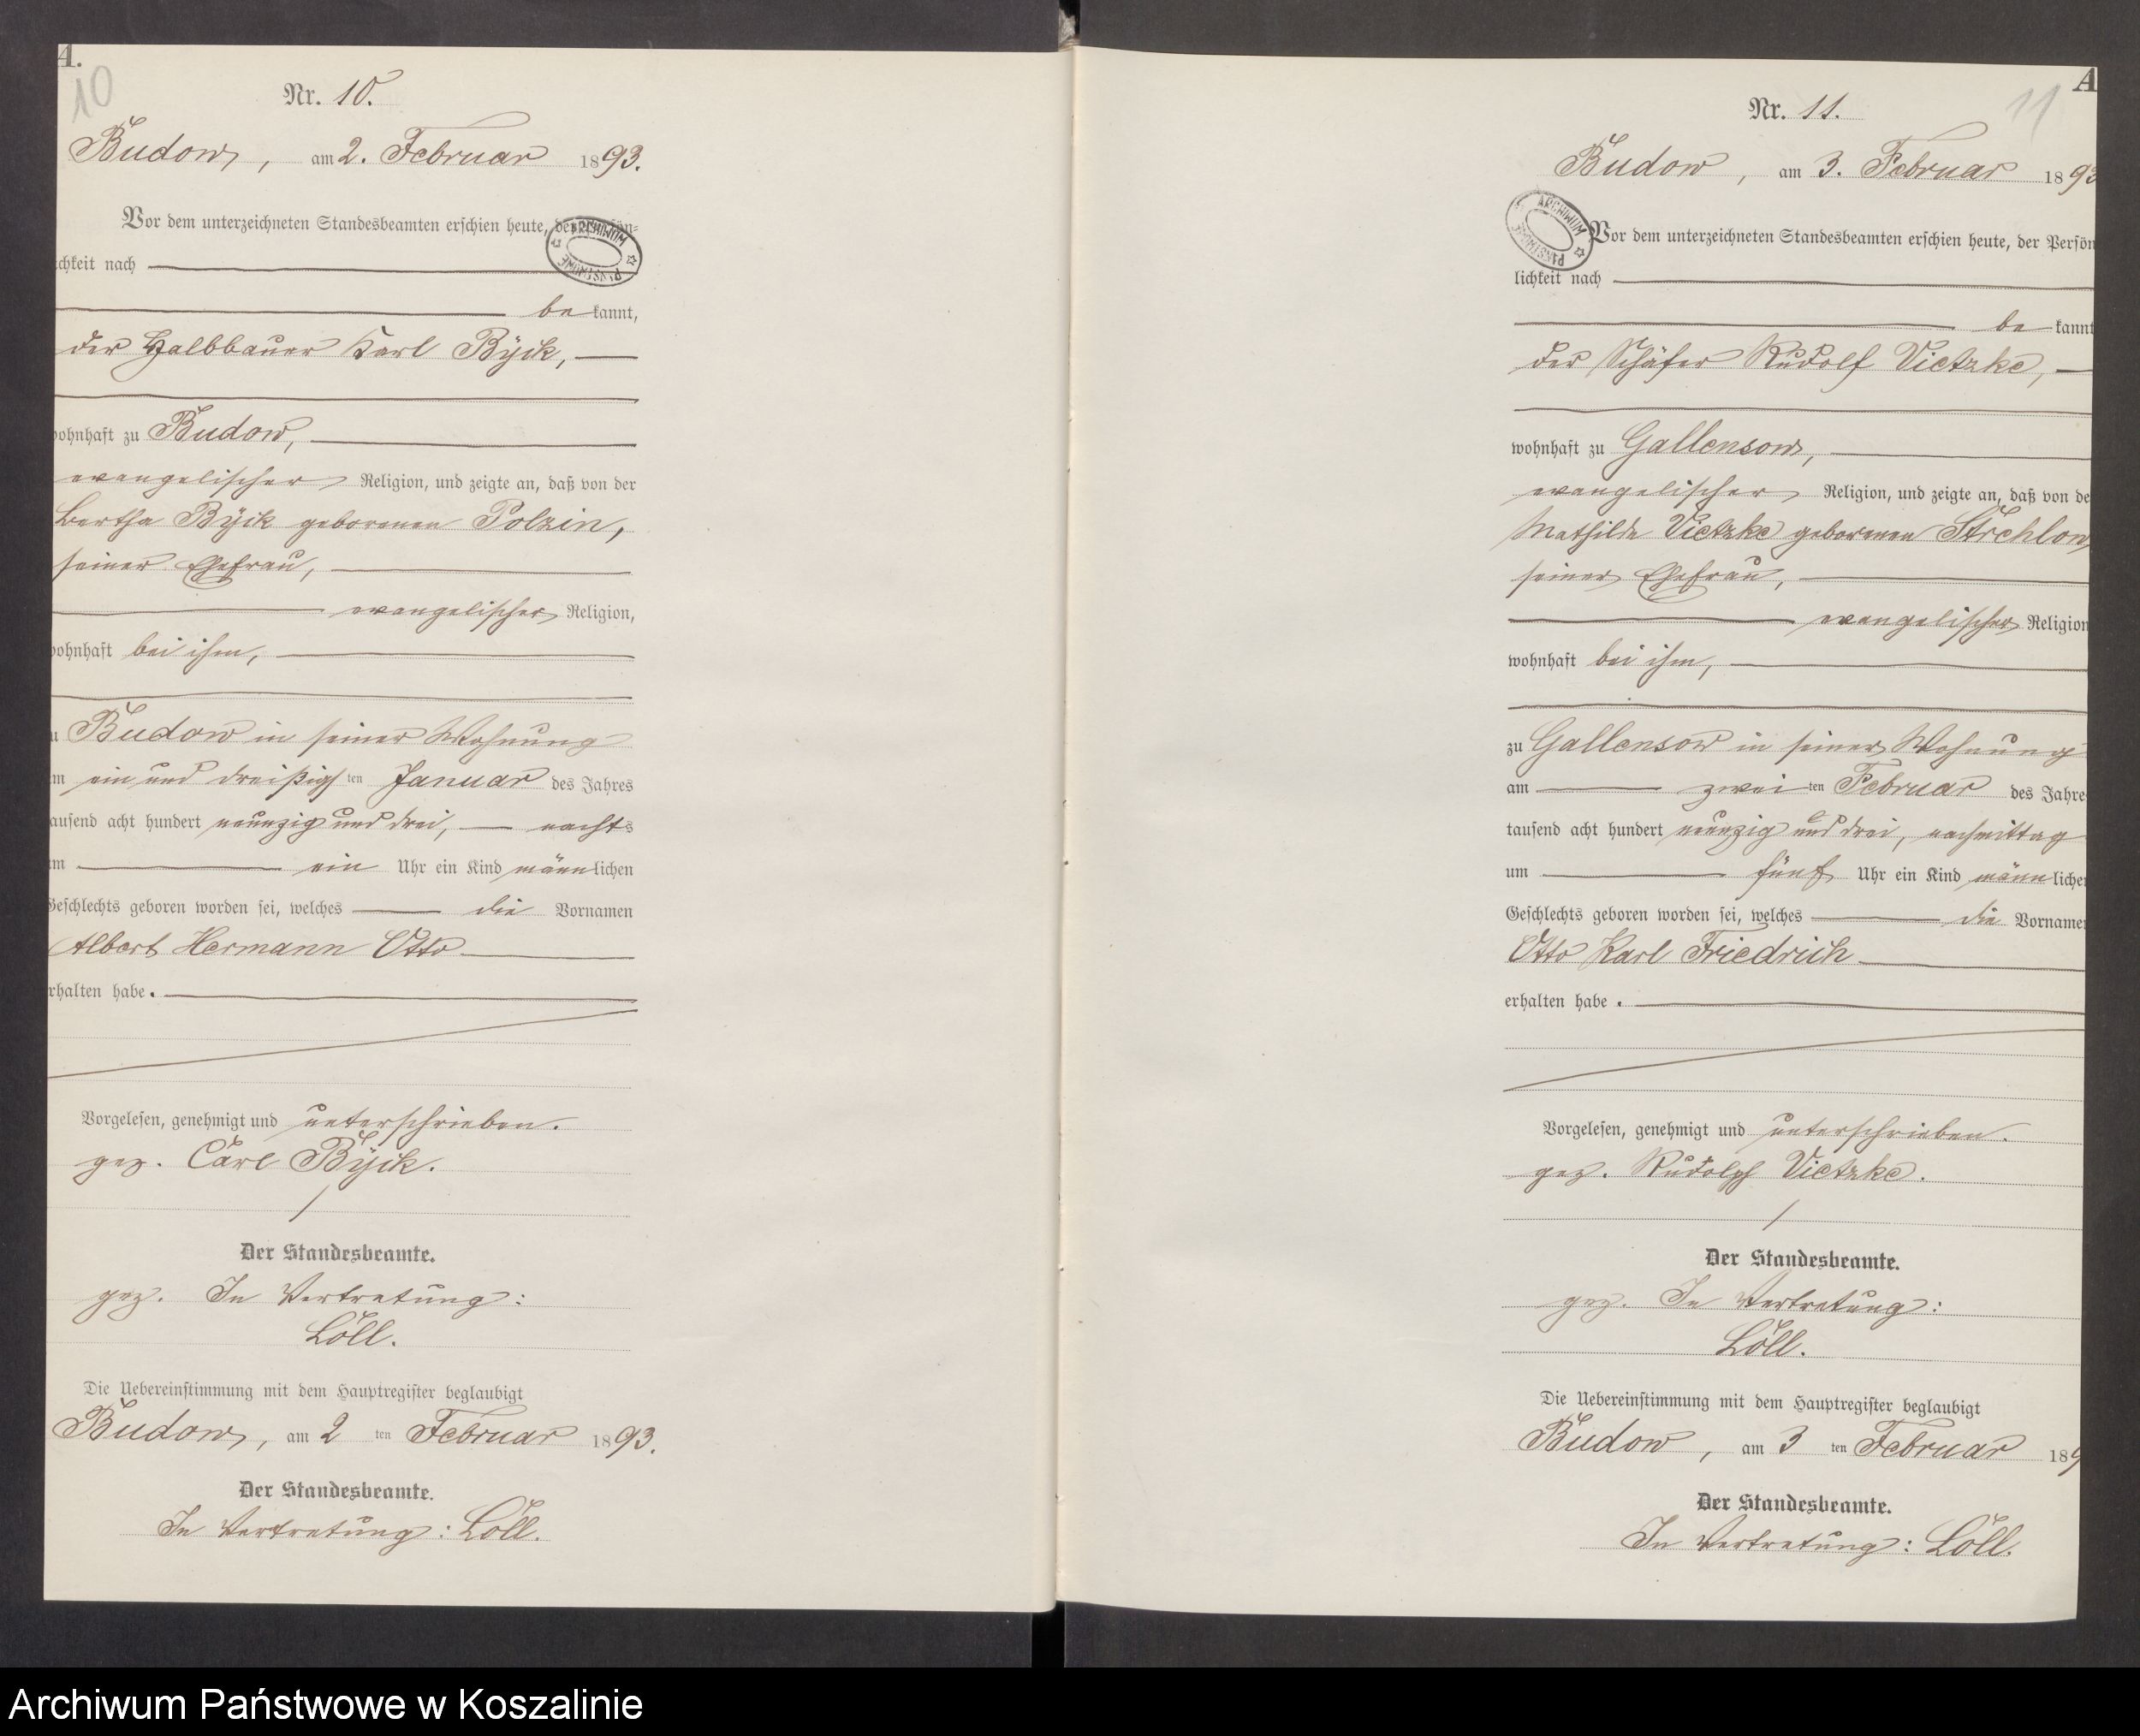 A.
10
Nr. 10.
Budow, am 2. Februar 1893.
Vor dem unterzeichneten Standesbeamten erschien heute, der Persön=
ichkeit nach
ARCHIWUM PAŃSTWOWE
be kannt,
der Halbbauer Karl Byik,
wohnhaft zu Budow,
evangelischer Religion, und zeigte an, daß von der
Bertha Byik geborenen Polzin,
seiner Ehefrau,
evangelischer Religion,
wohnhaft bei ihm,
u Budow in seiner Wohnung
m ein und dreißigsten Januar des Jahres
tausend acht hundert neunzig und drei, nachts
um ein Uhr ein Kind männlichen
Geschlechts geboren worden sei, welches die Vornamen
Albert Hermann Otto
erhalten habe.
Vorgelesen, genehmigt und unterschrieben.
gez. Carl Byik.
Der Standesbeamte.
gez. In Vertretung:
Löll.
Die Uebereinstimmung mit dem Hauptregister beglaubigt
Budow, am 2 ten Februar 1893.
Der Standesbeamte.
In Vertretung: Löll.
A
11
Nr. 11.
Budow, am 3. Februar 1893
ARCHIWUM PAŃSTWOWE
Vor dem unterzeichneten Standesbeamten erschien heute, der Persön
lichkeit nach
be kannt
der Schäfer Rudolf Vietzke,
wohnhaft zu Gallensow,
evangelischer Religion, und zeigte an, daß von de
Mathilde Vietzke geborenen Strehlow
seiner Ehefrau,
evangelischer Religion
wohnhaft bei ihm,
zu Gallensow in seiner Wohnung
am zwei ten Februar des Jahre
tausend acht hundert neunzig und drei, nachmittag
um fünf Uhr ein Kind männliche
Geschlechts geboren worden sei, welches die Vorname
Otto Karl Friedrich
erhalten habe.
Vorgelesen, genehmigt und unterschrieben.
gez. Rudolph Vietzke.
Der Standesbeamte.
gez. In Vertretung:
Löll.
Die Uebereinstimmung mit dem Hauptregister beglaubigt
Budow, am 3 ten Februar 189
Der Standesbeamte.
In Vertretung: Löll.
Archiwum Państwowe w Koszalinie